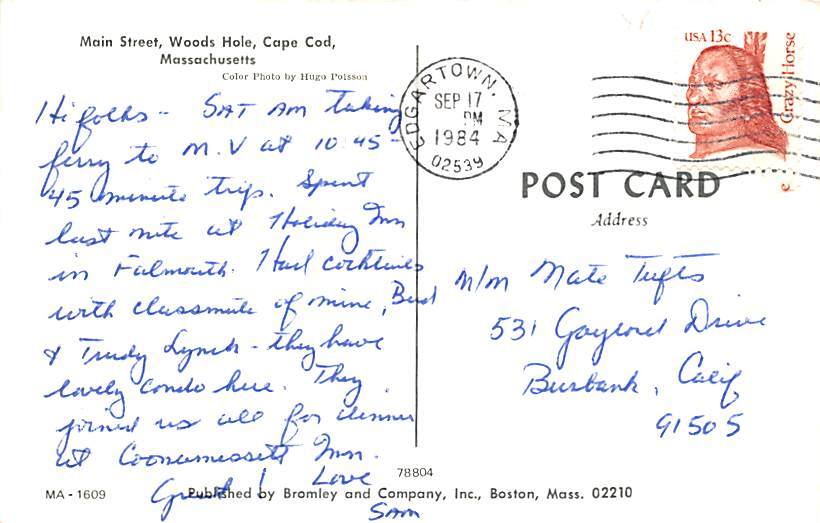 Main Street, Woods Hole, Cape Cod,
Massachusetts
Color Photo by Hugo Poisson
Hi folks - SAT AM taking
ferry to M.V at 10:45 -
45 minute trip. Spent
last nite at Holiday Inn
in Falmouth. Had cocktails
with classmate of mine, Bud
& Trudy Lynch - they have
lovely condo here. They
joined us all for dinner
at Coonamessett Inn.
Great! Love
Sam
EDGARTOWN, MA
SEP 17
PM
1984
02539
USA 13c
Crazy Horse
POST CARD
Address
M/M Nate Tufts
531 Gaylord Drive
Burbank, Calif
91505
78804
MA-1609
Published by Bromley and Company, Inc., Boston, Mass. 02210